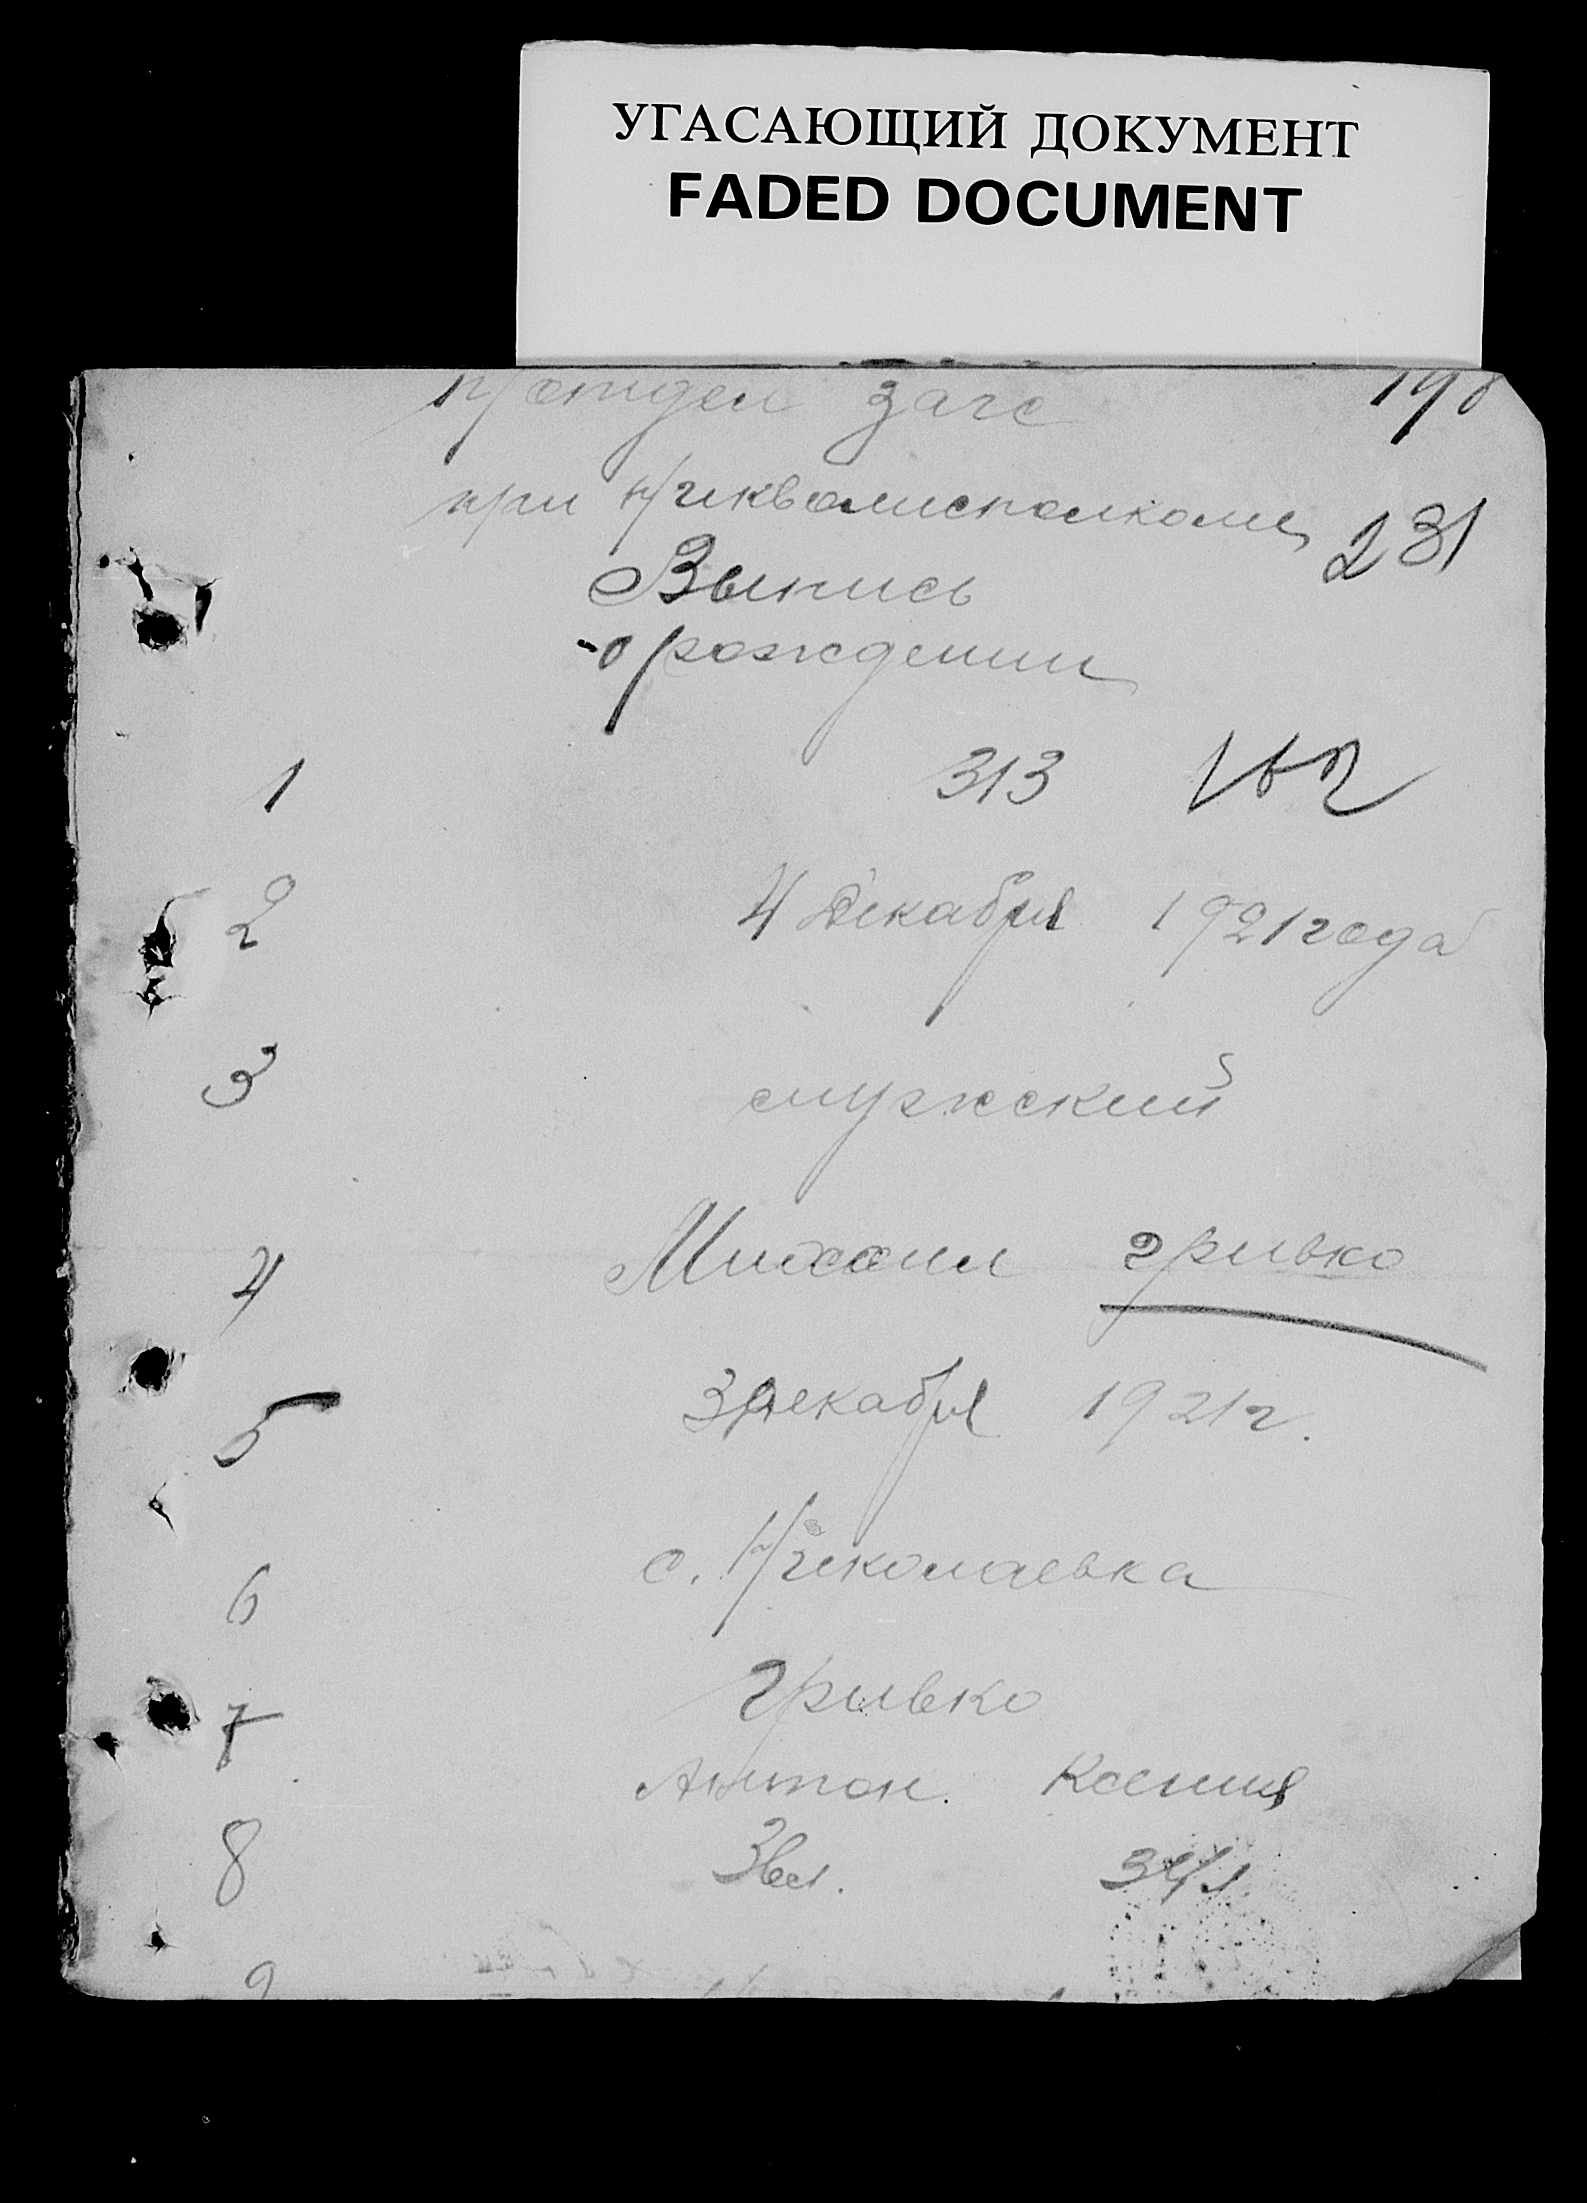 УГАСАЮЩИЙ ДОКУМЕНТ
FADED DOCUMENT
п/отдел загс
при Никволисполкоме
231
Выпись
о рождении
1 313
2 4 Декабря 1921 года
3 мужский
4 Михаил гривко
5 3 декабря 1921 г.
6 с. Николаевка
7 гривко
Антон. Ксения
8 36 л. 34 л
9